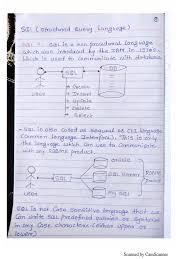 SQL (Structured Query Language)
SQL : SQL is a non procedural language
which was introduced by the IBM in 1970s
which is used to communicate with database
SQL
DB
User
Create
Insert
Update
Delete
Select
- SQL is also called as sequel or CLI language
(Common language Interface). This is only
the language which can use to communicate
with any RDBMS product.
oracle
SQL
SQL
my SQL
User
SQL is not Case Sensitive language that we
Can write SQL predefined
in any Case characters (either upper or
lower)
Scanned by CamScanner